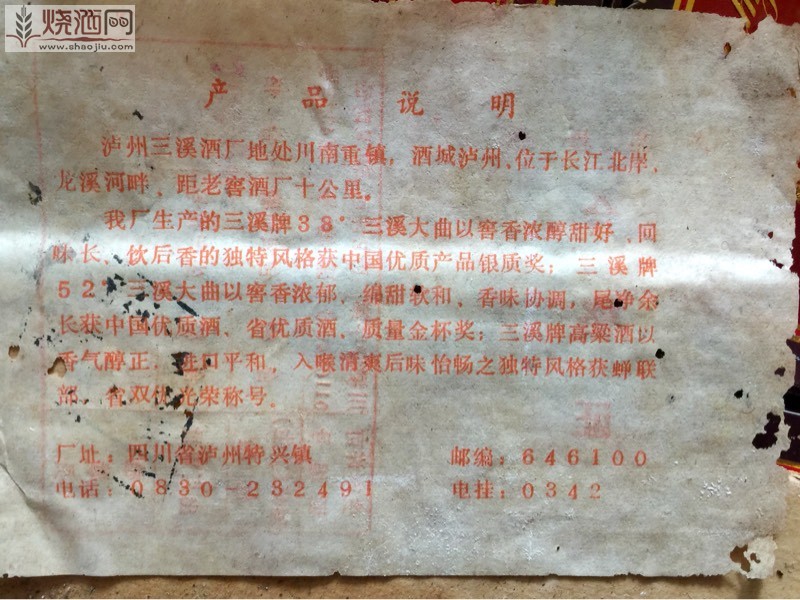 烧酒网
www.shaojiu.com
产品说明
泸州三溪酒厂地处川南重镇，酒城泸州、位于长江北岸，
龙溪河畔、距老窖酒厂十公里。
我厂生产的三溪牌38°三溪大曲以窖香浓醇甜好、回
味长、饮后香的独特风格获中国优质产品银质奖；三溪牌
52°三溪大曲以窖香浓郁、绵甜软和、香味协调，尾净余
长获中国优质酒、省优质酒、质量金杯奖；三溪牌高粱酒以
香气醇正、进口平和，入喉清爽后味怡畅之独特风格获蝉联
部、省双优光荣称号。
厂址：四川省泸州特兴镇 邮编：646100
电话：0830-232491 电挂：0342